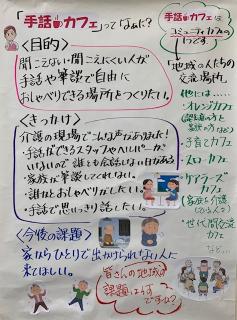 「手話カフェ」って なぁに？
〈目的〉
聞こえない・聞こえにくい人が
手話や筆談で自由に
おしゃべりできる場所をつくりたい。
〈きっかけ〉
介護の現場でこんな声がありました！
・手話ができるスタッフやヘルパーが
いないので誰とも会話しない日がある
・家族が筆談してくれない。
・誰かとおしゃべりがしたい。
・手話で思いっきり話したい。
〈今後の課題〉
家からひとりで出かけられない人に
来てほしい。
手話カフェは
コミュニティカフェの
1つです。
地域の人たちの
交流場所
他には……
・オレンジカフェ
・子育てカフェ
・スローカフェ
・ケアラーズ
カフェ
・世代間交流
カフェ
など…
皆さんの地域の
課題は
ですか？